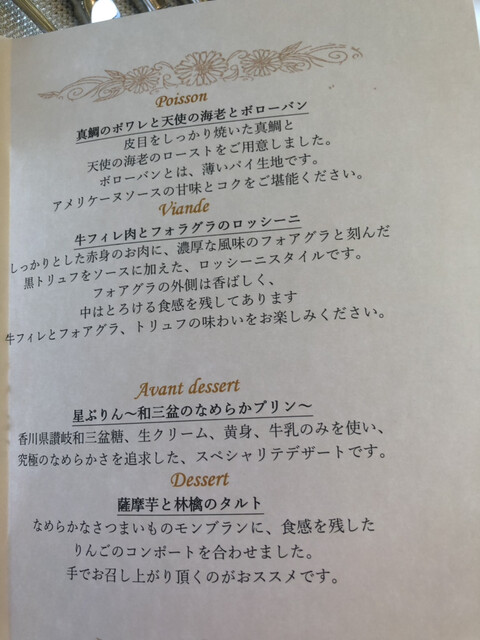 Poisson
真鯛のポワレと天使の海老とボローバン
皮目をしっかり焼いた真鯛と
天使の海老のローストをご用意しました。
ボローバンとは、薄いパイ生地です。
アメリケーヌソースの甘味とコクをご堪能ください。
Viande
牛フィレ肉とフォラグラのロッシーニ
しっかりとした赤身のお肉に、濃厚な風味のフォアグラと刻んだ
黒トリュフをソースに加えた、ロッシーニスタイルです。
フォアグラの外側は香ばしく、
中はとろける食感を残してあります
牛フィレとフォアグラ、トリュフの味わいをお楽しみください。
Avant dessert
星ぷりん～和三盆のなめらかプリン～
香川県讃岐和三盆糖、生クリーム、黄身、牛乳のみを使い、
究極のなめらかさを追求した、スペシャリテデザートです。
Dessert
薩摩芋と林檎のタルト
なめらかなさつまいものモンブランに、食感を残した
りんごのコンポートを合わせました。
手でお召し上がり頂くのがおススメです。